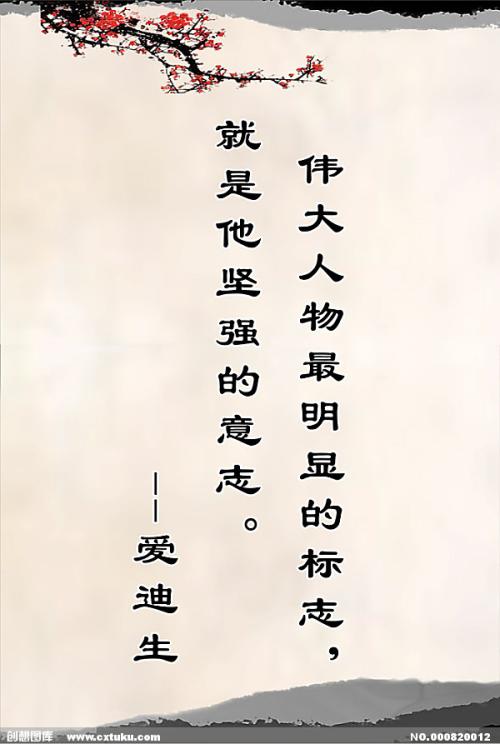 伟大人物最明显的标志，
就是他坚强的意志。
——爱迪生
创想图库 www.cxtuku.com
NO.000820012